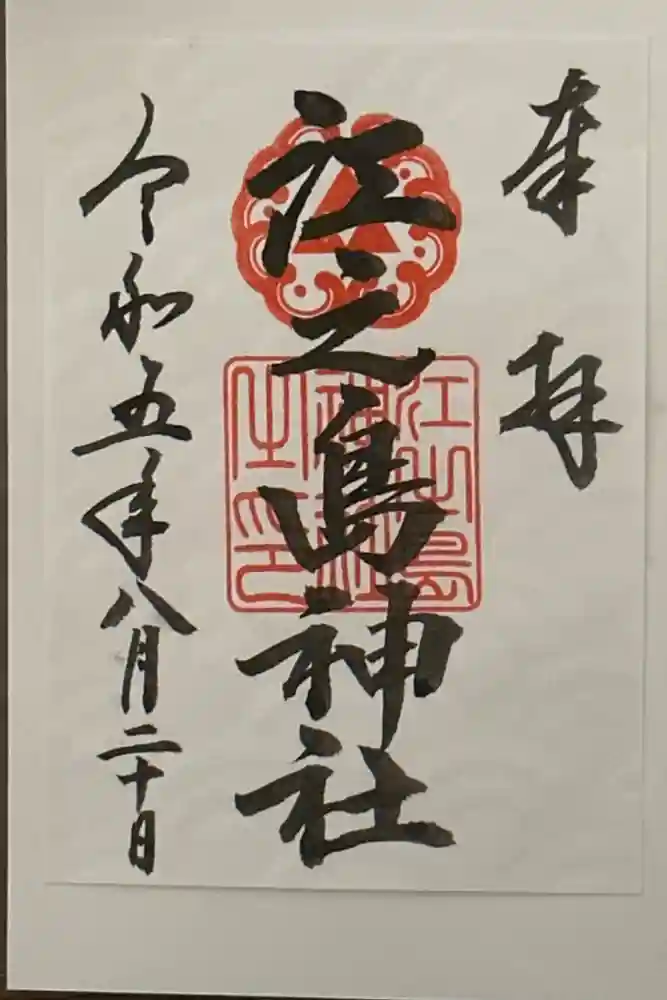 奉拝
江之島神社
江之島神社之印
令和五年八月二十日